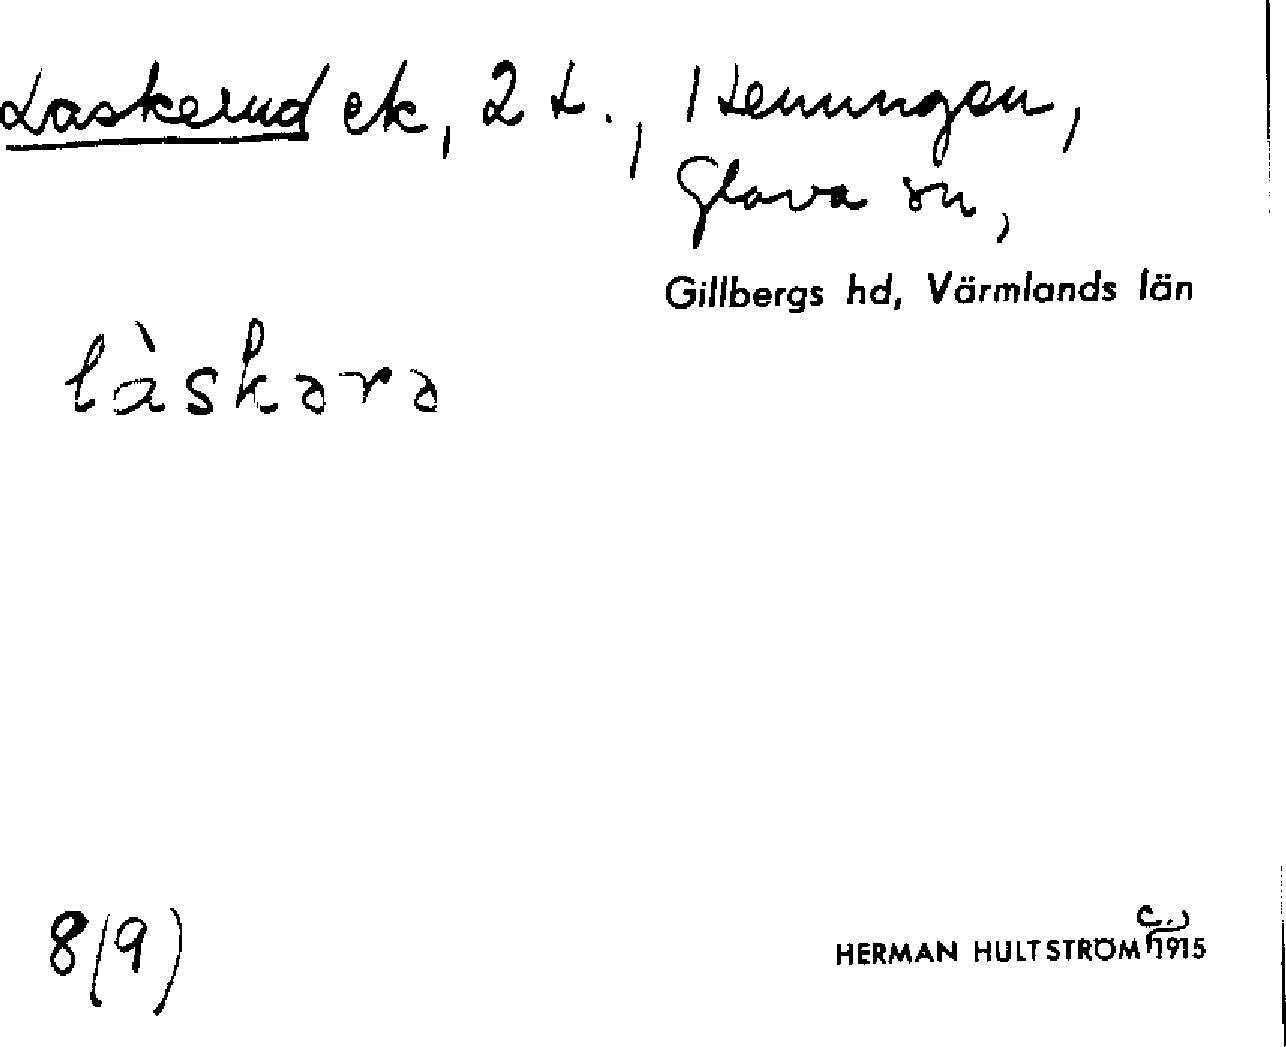 Laskerud ek, 2 t., Henungen,
Glava sn,
Gillbergs hd, Värmlands län
làskərə
8(9)
HERMAN HULTSTRÖM C. 1915